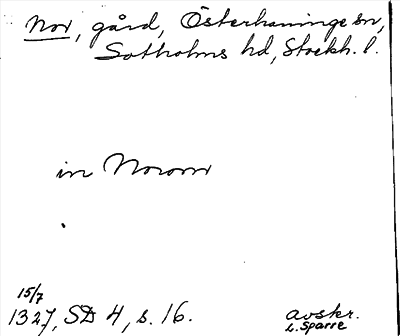 Nor, gård, Österhaninge sn,
Sotholms hd, Stockh. l.
in Norom
15/7
1327, SD 4, s. 16.
avskr.
L. Sparre